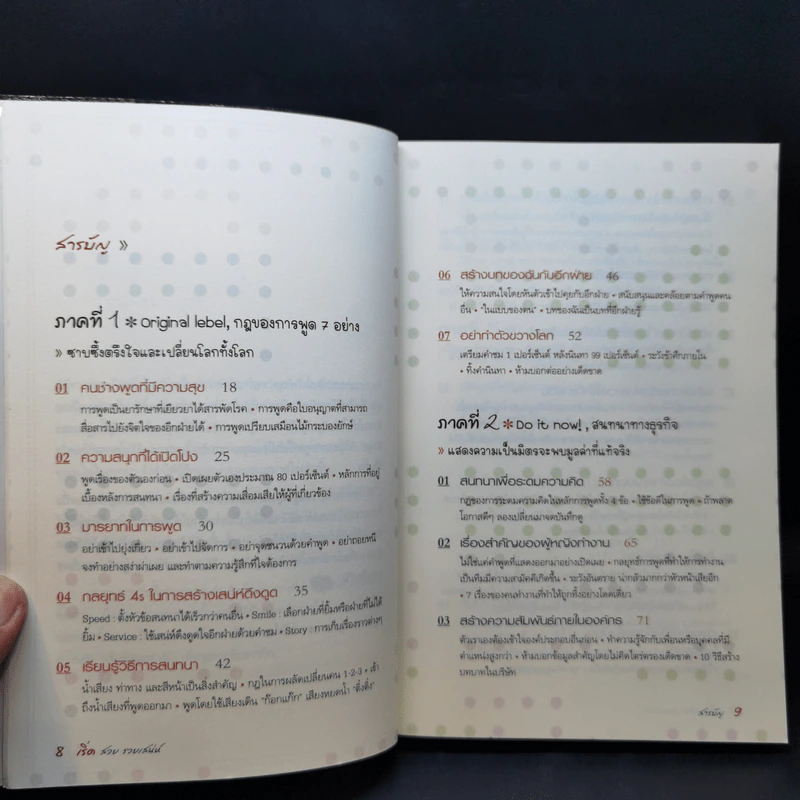 สารบัญ »
ภาคที่ 1 * Original lebel, กฎของการพูด 7 อย่าง
» ซาบซึ้งตรึงใจและเปลี่ยนโลกทั้งโลก
01 คนช่างพูดที่มีความสุข 18
การพูดเป็นยารักษาที่เยียวยาได้สารพัดโรค • การพูดคือใบอนุญาตที่สามารถ
สื่อสารไปยังจิตใจของอีกฝ่ายได้ • การพูดเปรียบเสมือนไม้กระบองยักษ์
02 ความสนุกที่ได้เปิดโปง 25
พูดเรื่องของตัวเองก่อน • เปิดเผยตัวเองประมาณ 80 เปอร์เซ็นต์ • หลักการที่อยู่
เบื้องหลังการสนทนา • เรื่องที่สร้างความเสื่อมเสียให้ผู้ที่เกี่ยวข้อง
03 มารยาทในการพูด 30
อย่าเข้าไปยุ่งเกี่ยว • อย่าเข้าไปจัดการ • อย่าจุดชนวนด้วยคำพูด • อย่าถอยหนี
จงทำอย่างสง่าผ่าเผย และทำตามความรู้สึกที่ใจต้องการ
04 กลยุทธ์ 4s ในการสร้างเสน่ห์ดึงดูด 35
Speed : ตั้งหัวข้อสนทนาได้เร็วกว่าคนอื่น • Smile : เลือกฝ่ายที่ยิ้มหรือฝ่ายที่ไม่ได้
ยิ้ม • Service : ใช้เสน่ห์ดึงดูดใจอีกฝ่ายด้วยคำชม • Story : การเก็บเรื่องราวต่างๆ
05 เรียนรู้วิธีการสนทนา 42
น้ำเสียง ท่าทาง และสีหน้าเป็นสิ่งสำคัญ • กฎในการผลัดเปลี่ยนคน 1-2-3 • เข้า
ถึงน้ำเสียงที่พูดออกมา • พูดโดยใช้เสียงเดิน “ก๊อกแก๊ก” เสียงหยดน้ำ “ติ๋งติ๋ง”
8 เริ่ด สวย รวยเสน่ห์
06 สร้างบทของฉันกับอีกฝ่าย 46
ให้ความสนใจโดยหันตัวเข้าไปคุยกับอีกฝ่าย • สนับสนุนและคล้อยตามคำพูดคน
อื่น • “ในแบบของตน” • บทของฉันเป็นบทที่อีกฝ่ายรู้
07 อย่าทำตัวขวางโลก 52
เตรียมคำชม 1 เปอร์เซ็นต์ หลังนินทา 99 เปอร์เซ็นต์ • ระวังข้าศึกภายใน
• ทิ้งคำนินทา • ห้ามบอกต่ออย่างเด็ดขาด
ภาคที่ 2 * Do it now!, สนทนาทางธุรกิจ
» แสดงความเป็นมิตรจะพบมูลค่าที่แท้จริง
01 สนทนาเพื่อระดมความคิด 58
กฎของการระดมความคิดในหลักการพูดทั้ง 4 ข้อ • ใช้ข้อดีในการพูด • ถ้าพลาด
โอกาสดีๆ ลองเปลี่ยนมาจดบันทึกดู
02 เรื่องสำคัญของผู้หญิงทำงาน 65
ไม่ใช่แค่คำพูดที่แสดงออกมาอย่างเปิดเผย • กลยุทธ์การพูดที่ทำให้การทำงาน
เป็นทีมมีความสามัคคีเกิดขึ้น • ระวังอันตราย น่ากลัวมากกว่าหัวหน้าเสียอีก
• 7 เรื่องของคนทำงานที่ทำให้ถูกทิ้งอย่างโดดเดี่ยว
03 สร้างความสัมพันธ์ภายในองค์กร 71
ตัวเราเองต้องเข้าใจองค์ประกอบอื่นก่อน • ทำความรู้จักกับเพื่อนหรือบุคคลที่มี
ตำแหน่งสูงกว่า • ห้ามบอกข้อมูลสำคัญโดยไม่คิดไตร่ตรองเด็ดขาด • 10 วิธีสร้าง
บทบาทในบริษัท
สารบัญ 9